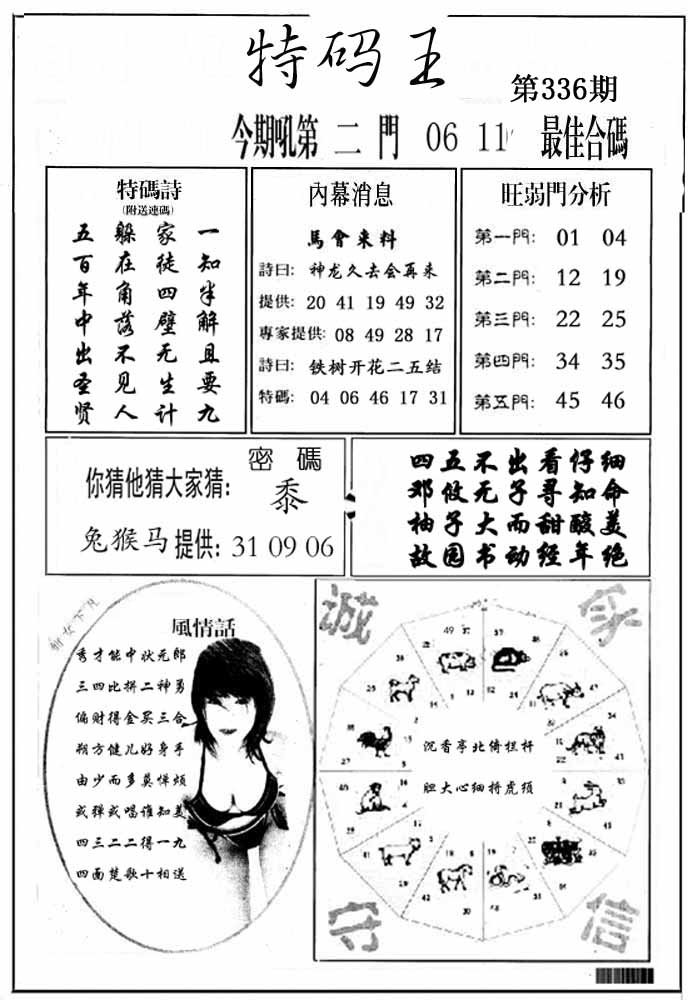 特码王
第336期
今期吼第 二 門 06 11 最佳合碼
特碼詩
(附送連碼)
一知半解且要九
家徒四壁无生计
躲在角落不见人
五百年中出圣贤
內幕消息
馬會来料
詩曰: 神龙久去会再来
提供: 20 41 19 49 32
專家提供: 08 49 28 17
詩曰: 铁树开花二五结
特碼: 04 06 46 17 31
旺弱門分析
第一門: 01 04
第二門: 12 19
第三門: 22 25
第四門: 34 35
第五門: 45 46
密碼
你猜他猜大家猜: 黍
兔猴马提供: 31 09 06
四五不出看仔细
邓攸无子寻知命
柚子大而甜酸美
故园书动经年绝
仙女下凡
風情話
秀才能中状元郎
三四比拼二神勇
偏财得金买三合
朔方健儿好身手
由少而多莫惮烦
或弹或唱谁知美
四三二二得一九
四面楚歌十相送
诚
守
信
沉香亭北倚栏杆
胆大心细捋虎须
49 37